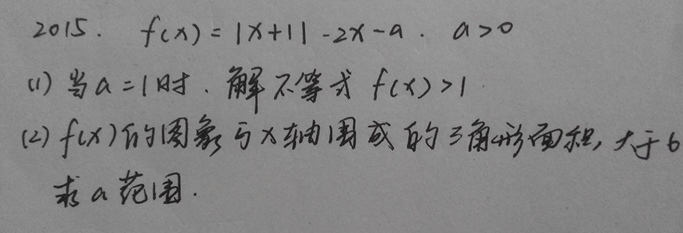 2015. f(x)=|x+1|-2x-a. a>0
(1) 当a=1时.解不等式 f(x)>1
(2) f(x)的图象与x轴围成的三角形面积,大于6
求a范围.